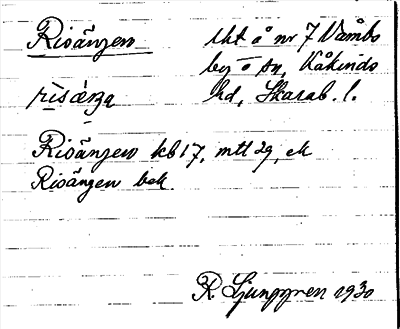 Risängen lht å nr 7 Våmbs
by o sn, Kåkinds
rìsæ̀ŋa hd, Skarab. l.
Risängen kb 17, mtl 29, ek
Risängen bek
R. Ljunggren 1930